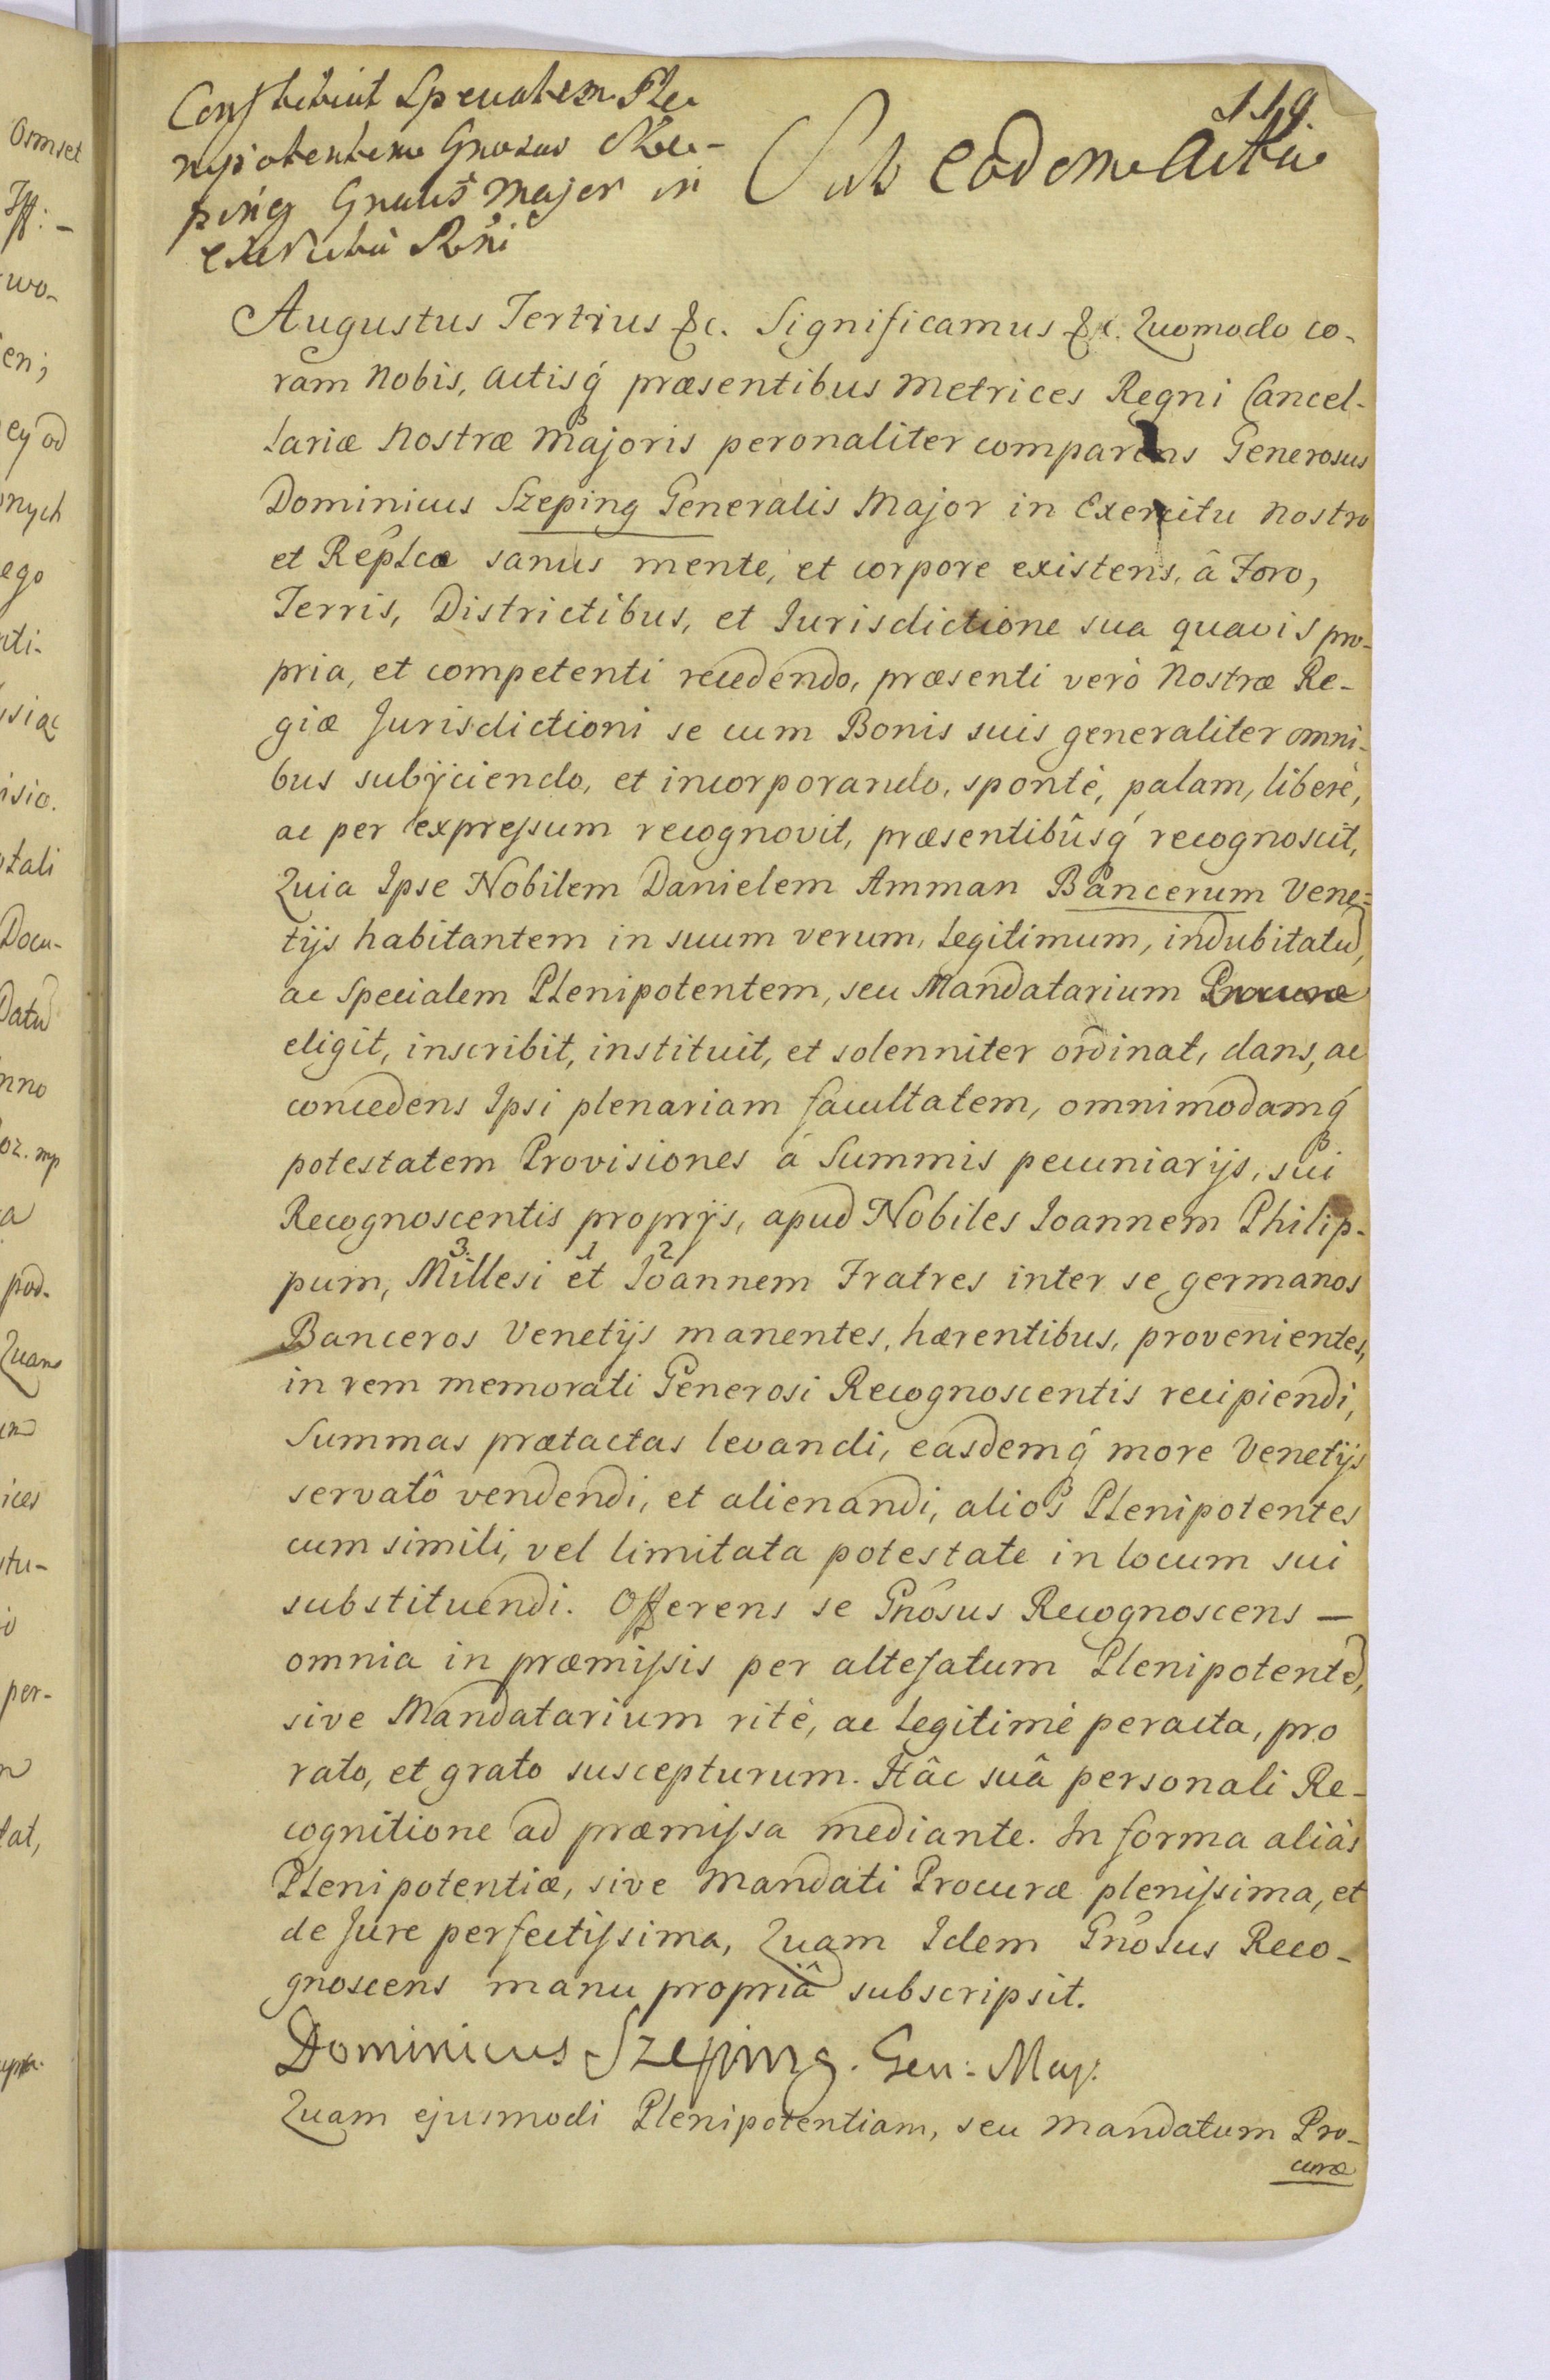 119.
Constituit Specialem Ple-
nipotentem Gnosus Sze-
ping Gnalis Major in
exercitu Rni
Sub eodem Actu
Augustus Tertius &c. Significamus &c. Quomodo co-
ram Nobis, Actisq́ præsentibus Metrices Regni Cancel-
lariæ Nostræ Majoris peronaliter comparens Generosus
Dominicus Szeping Generalis Major in Exercitu Nostro
et Reiplcæ sanus mente, et corpore existens, â Foro,
Terris, Districtibus, et Jurisdictione sua quavis pro-
pria, et competenti recedendo, præsenti verò Nostræ Re-
giæ Jurisdictioni se cum Bonis suis generaliter omni-
bus subijciendo, et incorporando, spontè, palam, liberè,
ac per expressum recognovit, præsentibûsq́ recognoscit,
Quia Ipse Nobilem Danielem Amman Bancerum Vene=
tijs habitantem in suum verum, legitimum, indubitatu,
ac Specialem Plenipotentem, seu Mandatarium Procuræ
eligit, inscribit, instituit, et solenniter ordinat, dans, ac
concedens Ipsi plenariam facultatem, omnimodamq́
potestatem Provisiones á Summis pecuniarijs, sui
Recognoscentis proprijs, apud Nobiles Joannem Philip-
pum, 3. Millesi 1 et 2 Joannem Fratres inter se germanos
Banceros Venetijs manentes, hærentibus, provenientes,
in rem memorati Generosi Recognoscentis recipiendi,
Summas prætactas levandi, easdemq́ more Venetijs
servatô vendendi, et alienandi, alios Plenipotentes
cum simili, vel limitata potestate in locum sui
substituendi. Offerens se Gnôsus Recognoscens —
omnia in præmissis per altefatum Plenipotente,
sive Mandatarium ritè, ac legitimè peracta, pro
rato, et grato suscepturum. Hâc suâ personali Re-
cognitione ad præmissa mediante. In forma aliàs
Plenipotentiæ, sive Mandati Procuræ plenissima, et
de Jure perfectissima, Quam Idem Gnôsus Reco-
gnoscens manu propriâ subscripsit.
Dominicus Szeping. Gen: May:
Quam ejusmodi Plenipotentiam, seu Mandatum Pro-
curæ